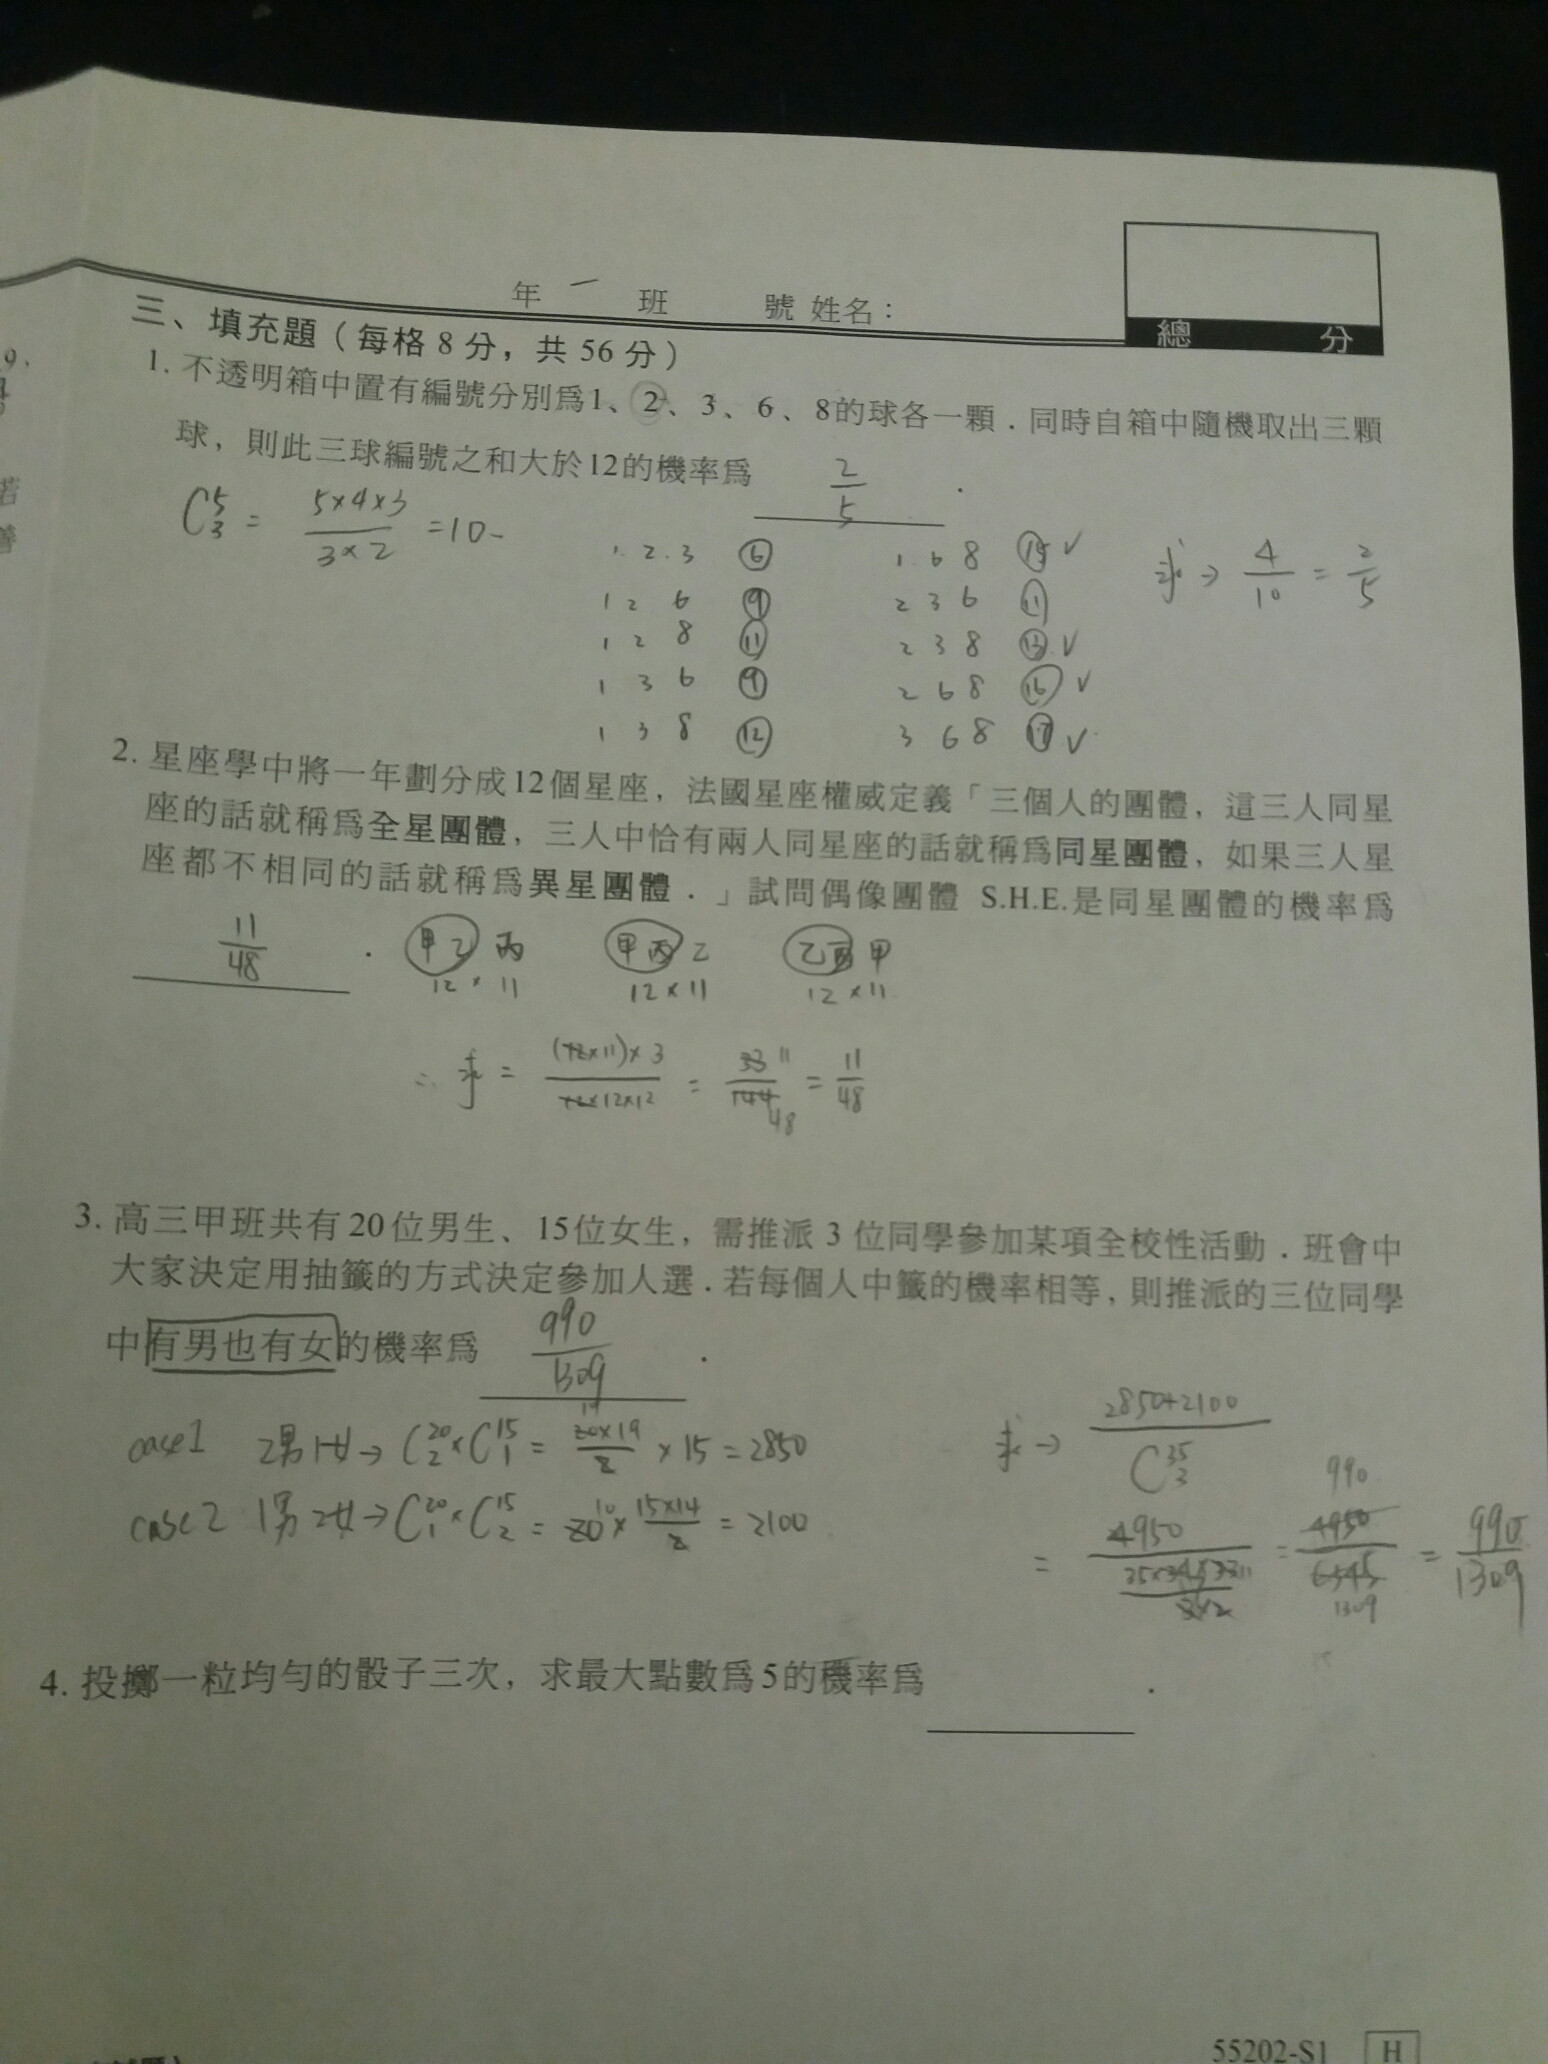 年 一 班 號 姓名：
總 分
三、填充題（每格 8 分，共 56 分）
1. 不透明箱中置有編號分別為1、2、3、6、8的球各一顆．同時自箱中隨機取出三顆
球，則此三球編號之和大於12的機率為 2/5 ．
C⁵₃ = 5×4×3 / 3×2 = 10
1 2 3 ⑥ 1 6 8 ⑮ ✓
1 2 6 ⑨ 2 3 6 ⑪
1 2 8 ⑪ 2 3 8 ⑬ ✓
1 3 6 ⑨ 2 6 8 ⑯ ✓
1 3 8 ⑫ 3 6 8 ⑰ ✓
求→ 4/10 = 2/5
2. 星座學中將一年劃分成12個星座，法國星座權威定義「三個人的團體，這三人同星
座的話就稱為全星團體，三人中恰有兩人同星座的話就稱為同星團體，如果三人星
座都不相同的話就稱為異星團體．」試問偶像團體 S.H.E.是同星團體的機率為
11/48 ．
甲乙 丙 甲丙 乙 乙丙 甲
12×11 12×11 12×11
∴ 求 = (12×11)×3 / 12×12×12 = 33 11 / 144 48 = 11/48
3. 高三甲班共有20位男生、15位女生，需推派 3 位同學參加某項全校性活動．班會中
大家決定用抽籤的方式決定參加人選．若每個人中籤的機率相等，則推派的三位同學
中有男也有女的機率為 990/1309 ．
case1 2男1女→ C²⁰₂×C¹⁵₁ = 20×19 / 2 × 15 = 2850
case2 1男2女→ C²⁰₁×C¹⁵₂ = 20 10 × 15×14 / 2 = 2100
求→ 2850+2100 / C³⁵₃
= 4950 / 35×34×33 11 / 3×2 = 4950 990 / 6545 1309 = 990/1309
4. 投擲一粒均勻的骰子三次，求最大點數為5的機率為 ．
55202-S1 H